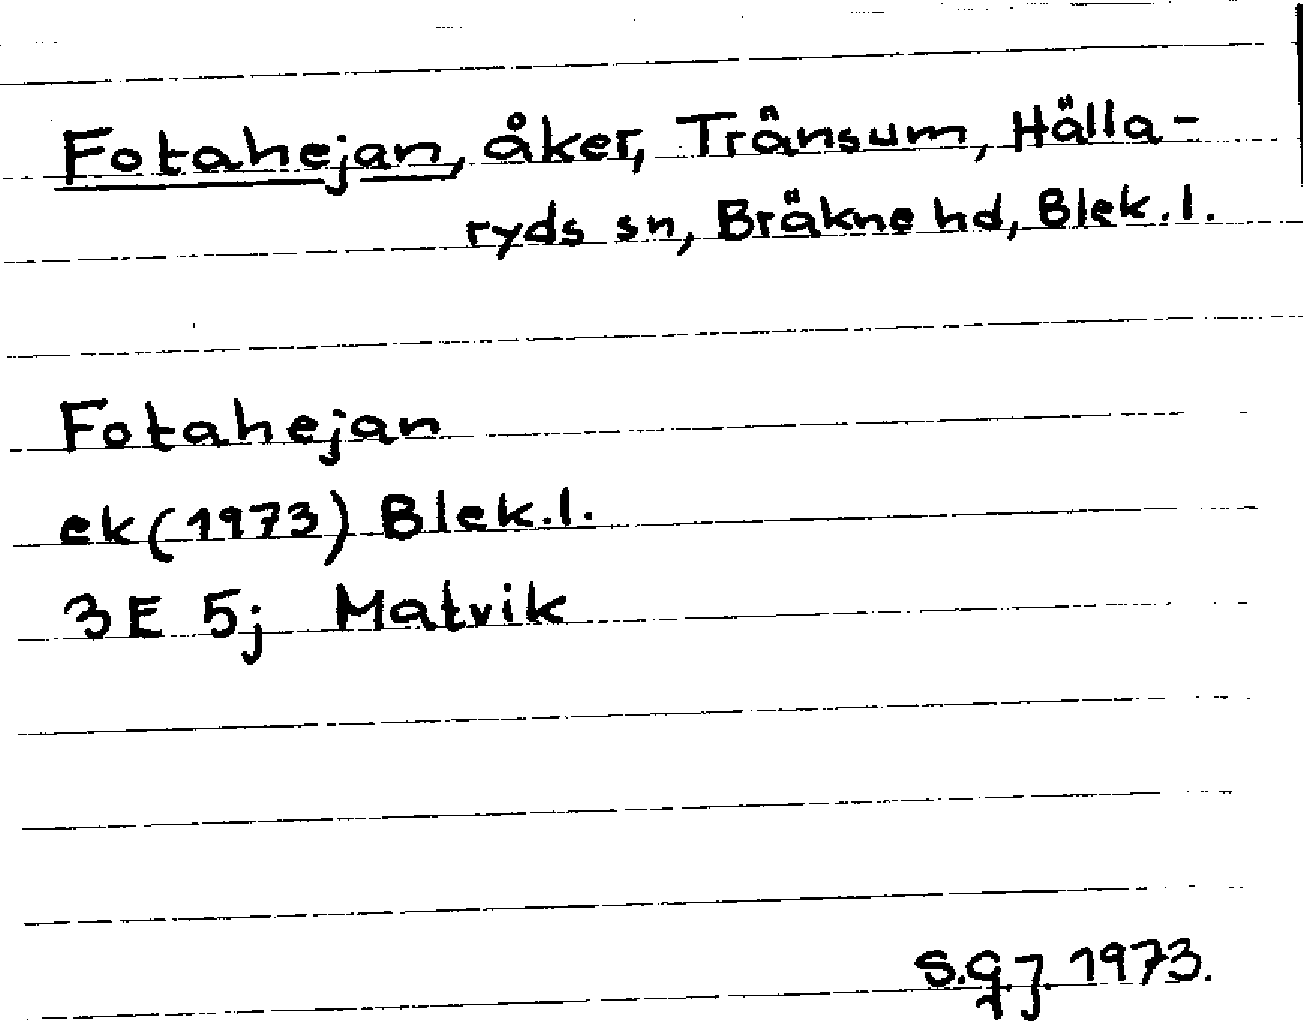 Fotahejan, åker, Tränsum, Hälla-
ryds sn, Bräkne hd, Blek.l.
Fotahejan
ek (1973) Blek.l.
3E 5j Matvik
S.G.J. 1973.